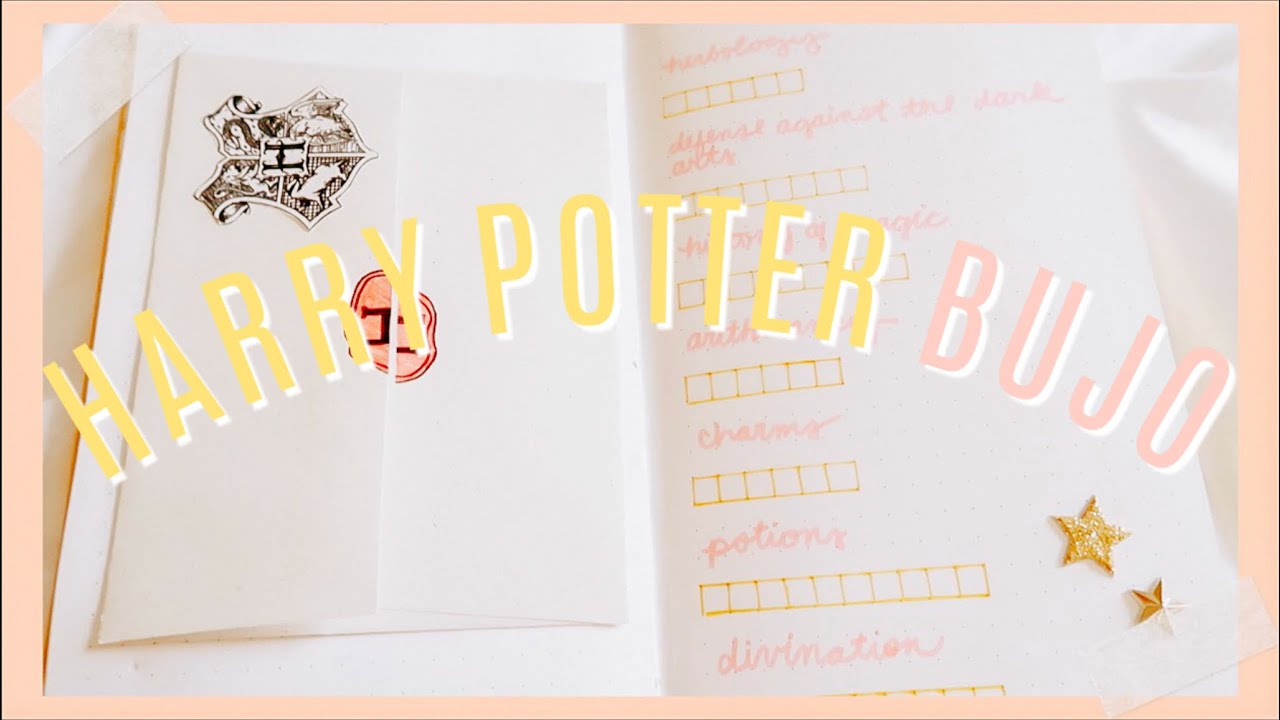 HARRY POTTER BUJO
H
H
herbology
defense against the dark
arts
history of magic
charms
potions
divination